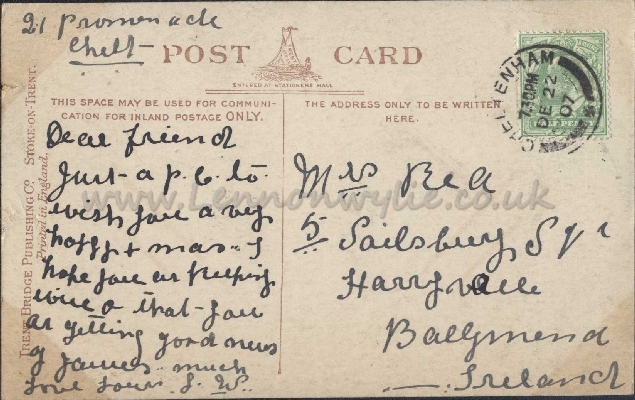 21 Promenade
Chelt
POST CARD
ENTERED AT STATIONERS HALL
THIS SPACE MAY BE USED FOR COMMUNI-
CATION FOR INLAND POSTAGE ONLY.
THE ADDRESS ONLY TO BE WRITTEN
HERE.
TRENT BRIDGE PUBLISHING CO. STOKE-ON-TRENT.
Printed in England.
Dear friend
Just a p.c to
wish you a very
happy + mas. I
hope you are keeping
well & that you
are getting good news
of James. much
love yours J. W.
Mrs Rea
5 Sailsbury Sqr
Harryville
Ballymena
Ireland
CHELTENHAM
7.30PM
DE 22
07
HALFPENNY
www.Lennonwylie.co.uk